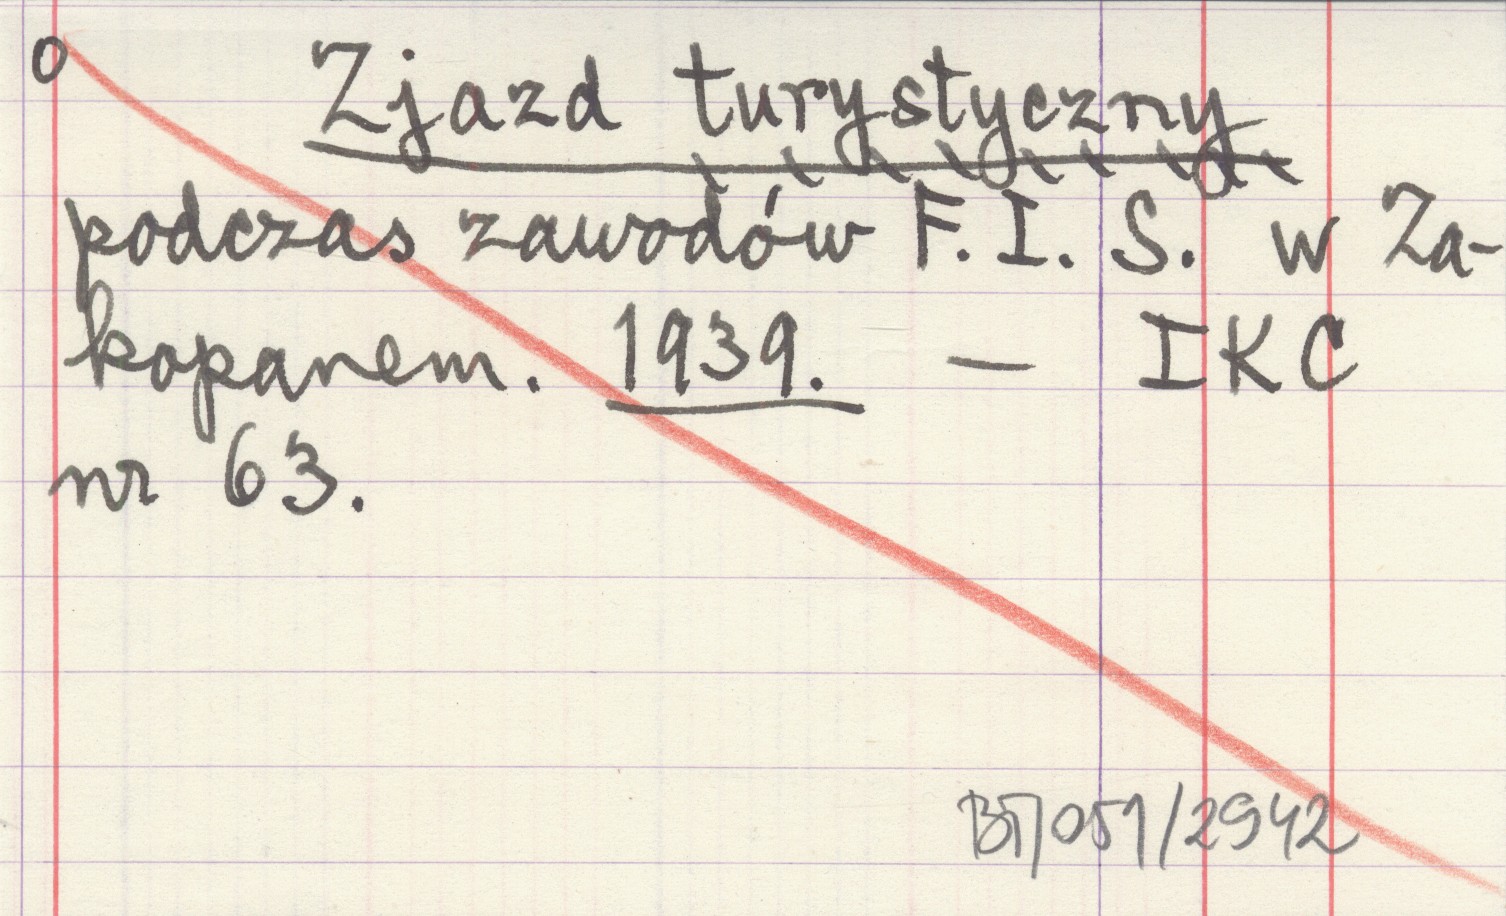 0 Zjazd turystyczny
podczas zawodów F.I.S. w Za-
kopanem. 1939. — IKC
nr 63.
051/2942